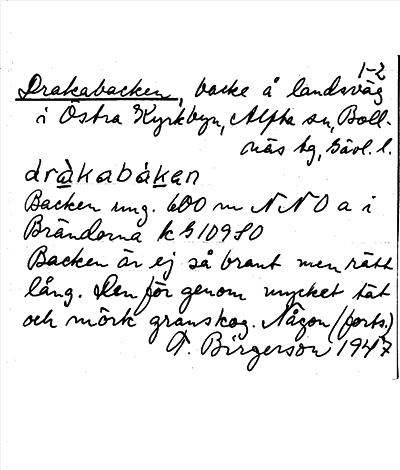 1-2
Drakabacken, backe å landsväg
i Östra Kyrkbyn, Alfta sn, Boll-
näs tg, Gävl. l.
dràkabákan
Backen ung. 600 m NNO a i
Bränderna k G 10980
Backen är ej så brant men rätt
lång. Den för genom mycket tät
och mörk granskog. Någon (forts.)
T. Birgerson 1947